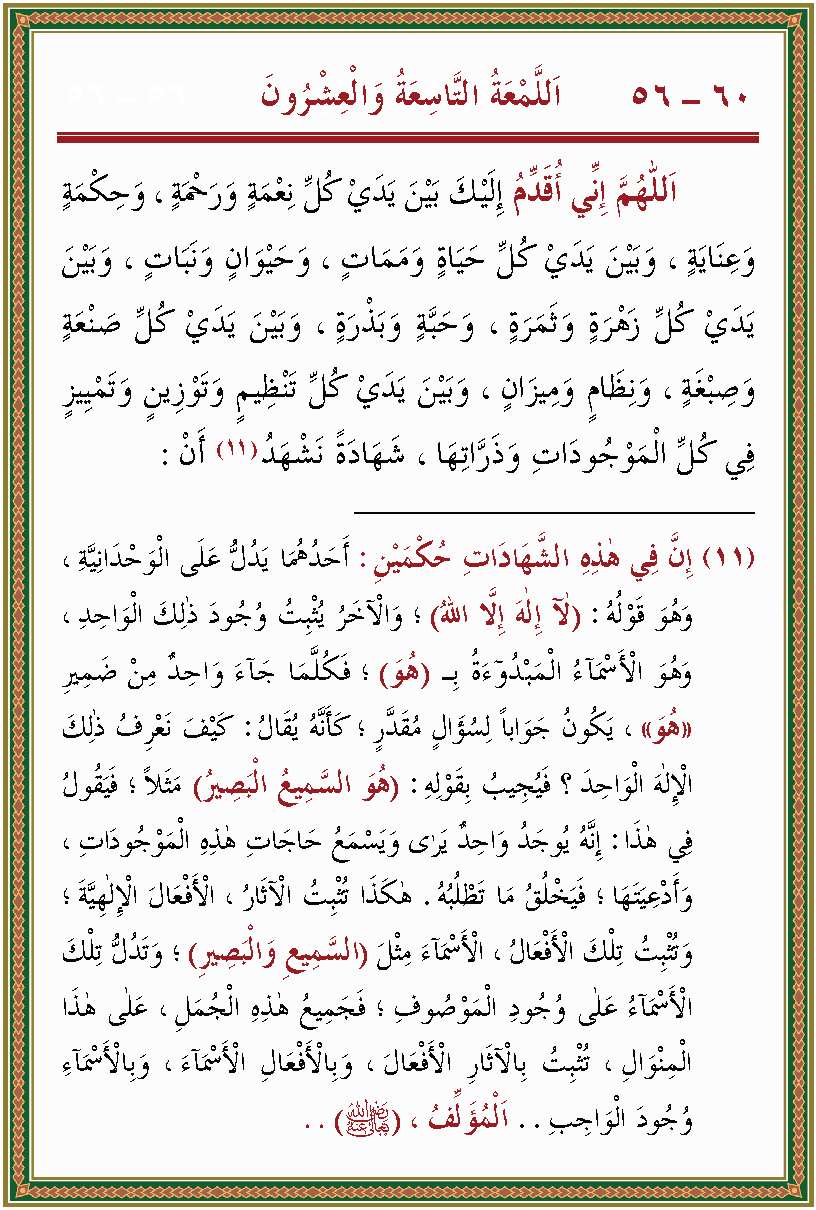 ٦٠ – ٥٦ اَللَّمْعَةُ التَّاسِعَةُ وَالْعِشْرُونَ
اَللّٰهُمَّ إِنِّي أُقَدِّمُ إِلَيْكَ بَيْنَ يَدَيْ كُلِّ نِعْمَةٍ وَرَحْمَةٍ ، وَحِكْمَةٍ
وَعِنَايَةٍ ، وَبَيْنَ يَدَيْ كُلِّ حَيَاةٍ وَمَمَاتٍ ، وَحَيْوَانٍ وَنَبَاتٍ ، وَبَيْنَ
يَدَيْ كُلِّ زَهْرَةٍ وَثَمَرَةٍ ، وَحَبَّةٍ وَبَذْرَةٍ ، وَبَيْنَ يَدَيْ كُلِّ صَنْعَةٍ
وَصِبْغَةٍ ، وَنِظَامٍ وَمِيزَانٍ ، وَبَيْنَ يَدَيْ كُلِّ تَنْظِيمٍ وَتَوْزِينٍ وَتَمْيِيزٍ
فِي كُلِّ الْمَوْجُودَاتِ وَذَرَّاتِهَا ، شَهَادَةً نَشْهَدُ (١١) أَنْ :
(١١) إِنَّ فِي هٰذِهِ الشَّهَادَاتِ حُكْمَيْنِ : أَحَدُهُمَا يَدُلُّ عَلَى الْوَحْدَانِيَّةِ ،
وَهُوَ قَوْلُهُ : (لَآ إِلٰهَ إِلَّا اللهُ) ؛ وَالْآخَرُ يُثْبِتُ وُجُودَ ذٰلِكَ الْوَاحِدِ ،
وَهُوَ الْأَسْمَآءُ الْمَبْدُوٓءَةُ بِـ (هُوَ) ؛ فَكُلَّمَا جَآءَ وَاحِدٌ مِنْ ضَمِيرِ
«هُوَ» ، يَكُونُ جَوَاباً لِسُؤَالٍ مُقَدَّرٍ ؛ كَأَنَّهُ يُقَالُ : كَيْفَ نَعْرِفُ ذٰلِكَ
الْإِلٰهَ الْوَاحِدَ ؟ فَيُجِيبُ بِقَوْلِهِ : (هُوَ السَّمِيعُ الْبَصِيرُ) مَثَلاً ؛ فَيَقُولُ
فِي هٰذَا : إِنَّهُ يُوجَدُ وَاحِدٌ يَرٰى وَيَسْمَعُ حَاجَاتِ هٰذِهِ الْمَوْجُودَاتِ ،
وَأَدْعِيَتَهَا ؛ فَيَخْلُقُ مَا تَطْلُبُهُ . هٰكَذَا تُثْبِتُ الْآثَارُ ، الْأَفْعَالَ الْإِلٰهِيَّةَ ؛
وَتُثْبِتُ تِلْكَ الْأَفْعَالُ ، الْأَسْمَآءَ مِثْلَ (السَّمِيعِ وَالْبَصِيرِ) ؛ وَتَدُلُّ تِلْكَ
الْأَسْمَآءُ عَلٰى وُجُودِ الْمَوْصُوفِ ؛ فَجَمِيعُ هٰذِهِ الْجُمَلِ ، عَلٰى هٰذَا
الْمِنْوَالِ ، تُثْبِتُ بِالْآثَارِ الْأَفْعَالَ ، وَبِالْأَفْعَالِ الْأَسْمَآءَ ، وَبِالْأَسْمَآءِ
وُجُودَ الْوَاجِبِ . . اَلْمُؤَلِّفُ ، (رَضِيَ اللهُ تَعَالَى عَنْهُ) . .